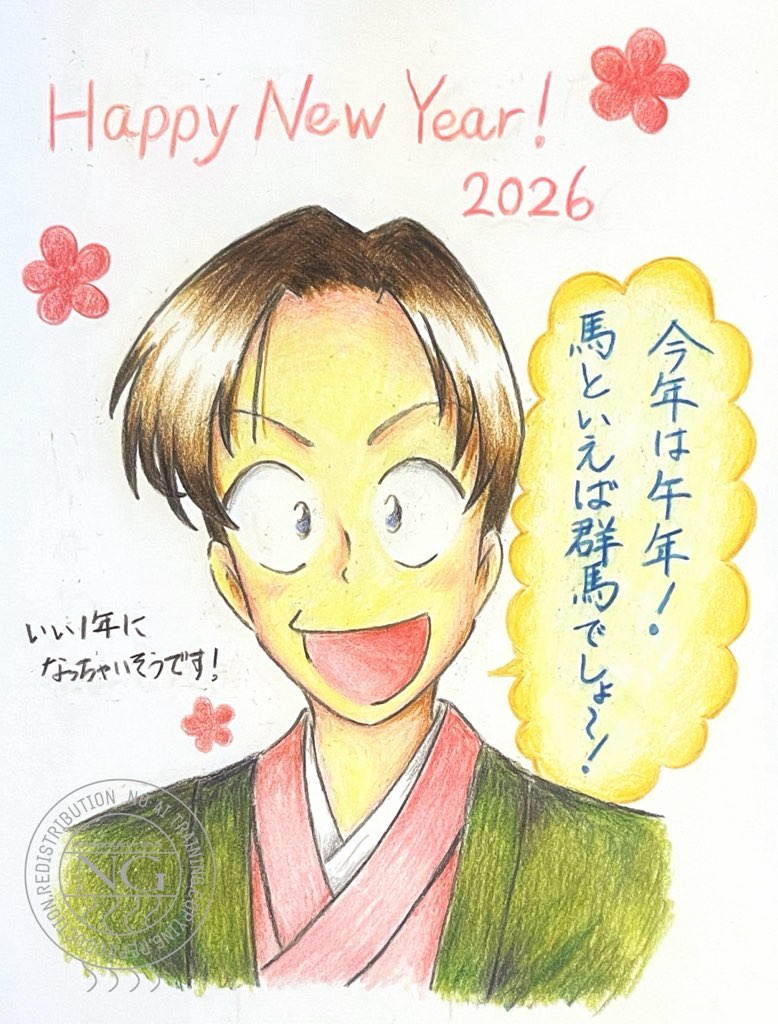 Happy New Year!
2026
今年は午年!
馬といえば群馬でしょ〜!
いい1年に
なっちゃいそうです!
NG
REPRODUCTION,REDISTRIBUTION NO AI TRAINING